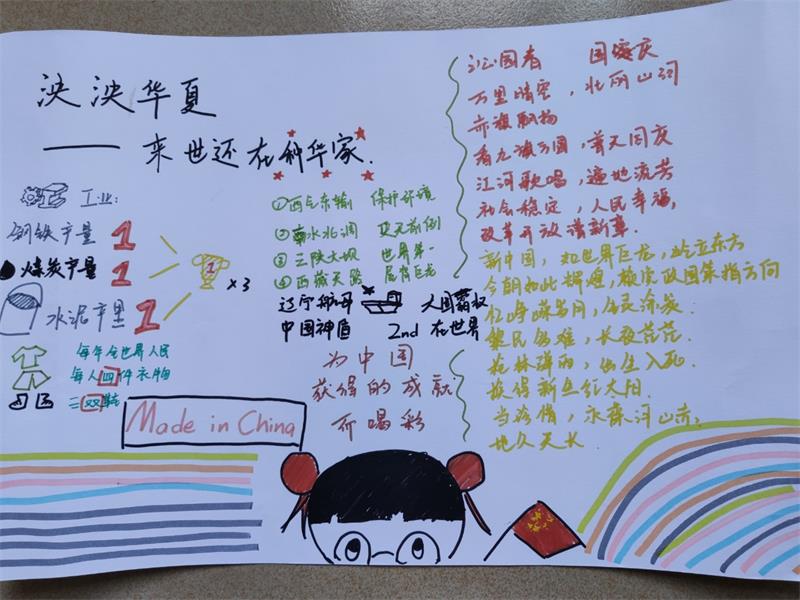 泱泱华夏
——来世还在种华家.
工业:
钢铁产量 1
煤炭产量 1
水泥产量 1
1
x3
每年全世界人民
每人四件衣物
三双鞋
①西气东输 保护环境
②南水北调 史无前例
③三陕大坝 世界第一
④西藏天路
辽宁航母 人国霸权
中国神盾 2nd 在世界
为中国
获得的成就
而喝彩
Made in China
沁园春 国家庆
万里晴空，壮丽山河
赤旗飘扬
看九旗方圆，普天同庆
江河歌唱，遍地流芳
社会稳定，人民幸福，
改革开放谱新章.
新中国，如世界巨龙，屹立东方
今朝如此辉煌，
黎民多难，长夜茫茫.
枪林弹雨，出生入死.
换得新生红太阳.
永齐河山赤，
地久天长